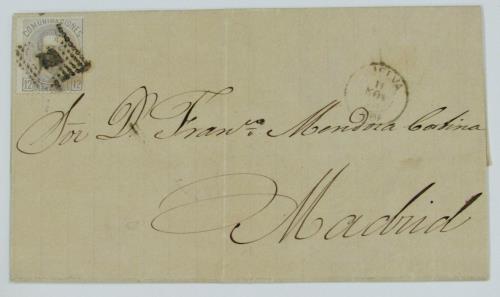 COMUNICACIONES
12 12
Sor Dn. Franco. Mendoza Cortina
Madrid